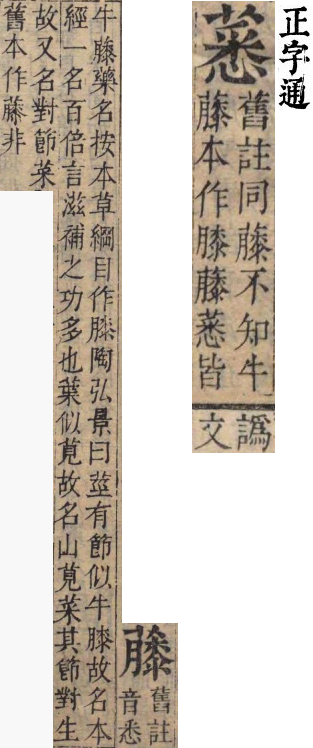 正字通
舊註同不知牛
本作膝皆
譌
文
舊註
音悉
牛藥名按本草綱目作膝陶弘景曰莖有節似牛膝故名本
經一名百倍言滋補之功多也葉似莧故名山莧菜其節對生
故又名對節菜
舊本作非